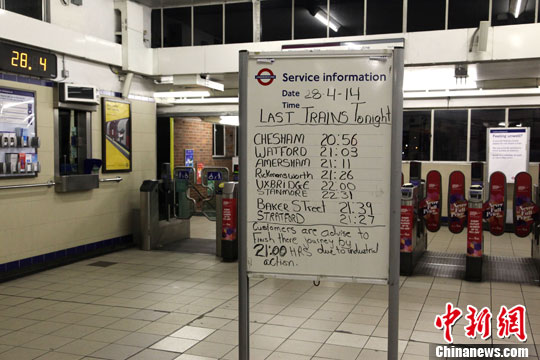 28.4
Service information
Date 28-4-14
Time
LAST TRAINS Tonight
CHESHAM 20:56
WATFORD 21:03
AMERSHAM 21:11
Rickmansworth 21:26
UXBRIDGE 22.00
STANMORE 22.31
BAKER Street 21:39
STRATFORD 21:27
Customers are advise to
finish there journey by
21:00 HRS due to industrial
action.
中新网
Chinanews.com